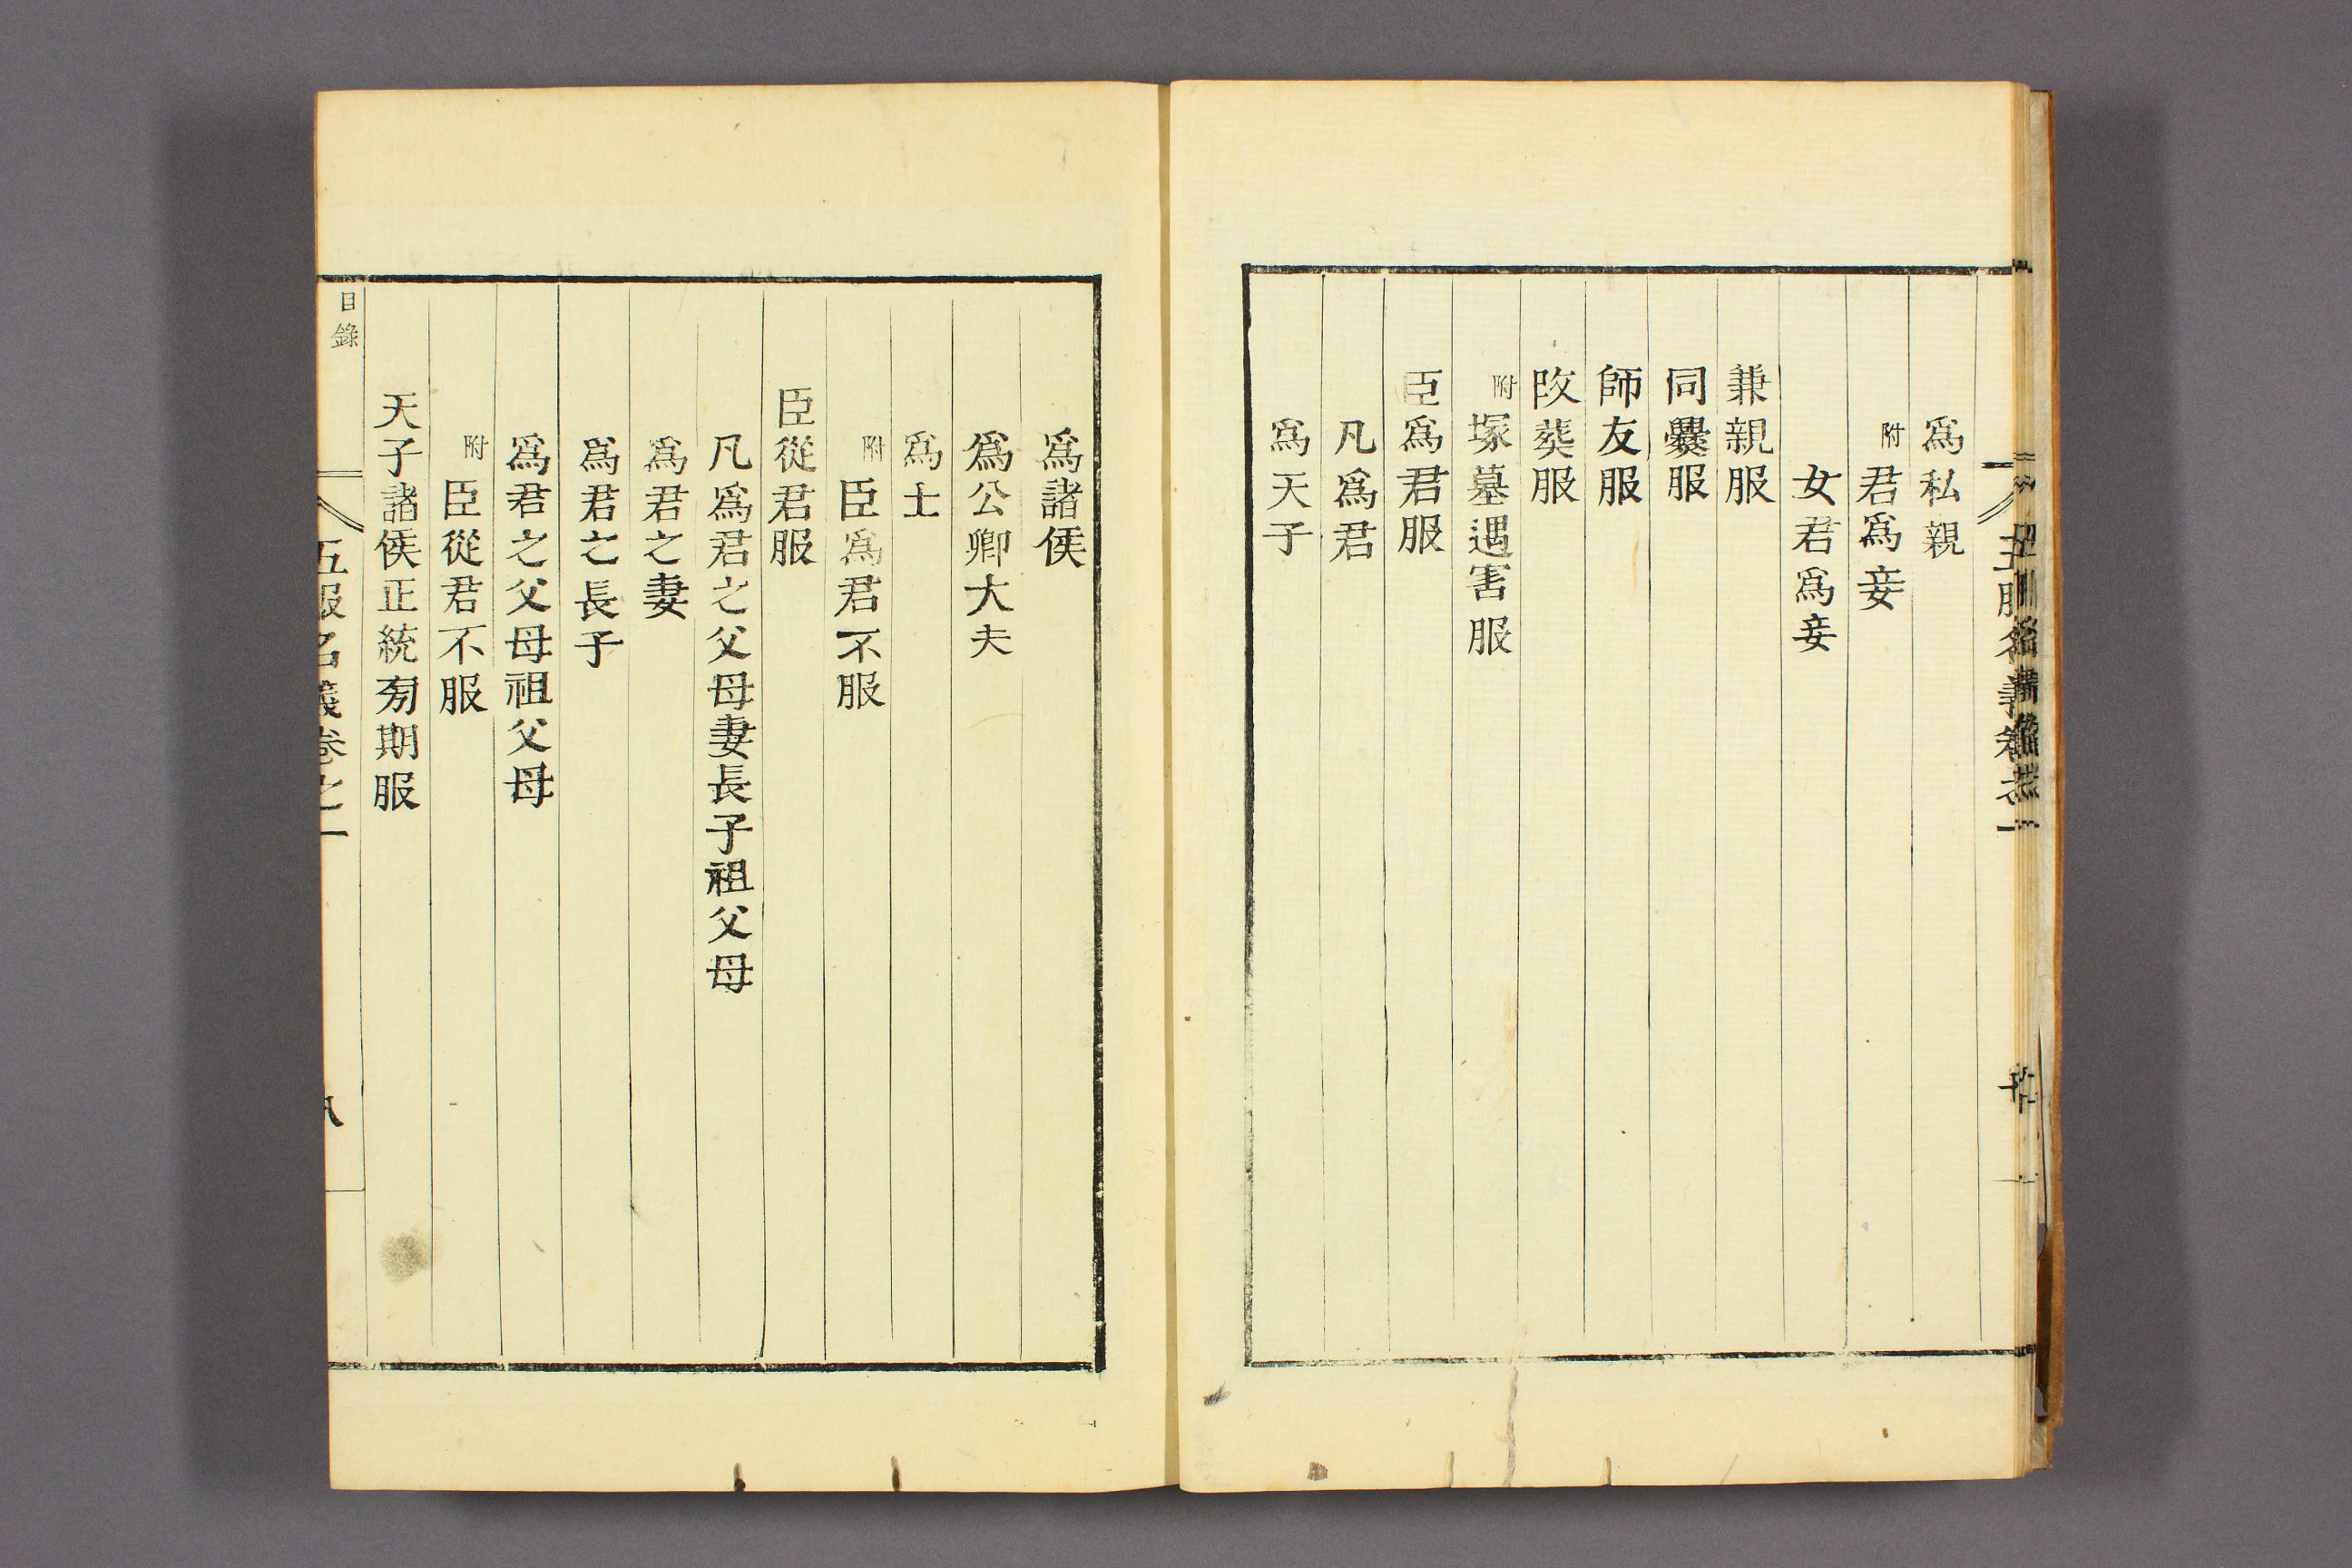 爲私親
附君爲妾
女君爲妾
兼親服
同爨服
師友服
改葬服
附塚墓遇害服
臣爲君服
凡爲君
爲天子
爲諸侯
爲公卿大夫
爲士
附臣爲君不服
臣從君服
凡爲君之父母妻長子祖父母
爲君之妻
爲君之長子
爲君之父母祖父母
附臣從君不服
天子諸侯正統旁期服
目錄
五服名義卷之一
八